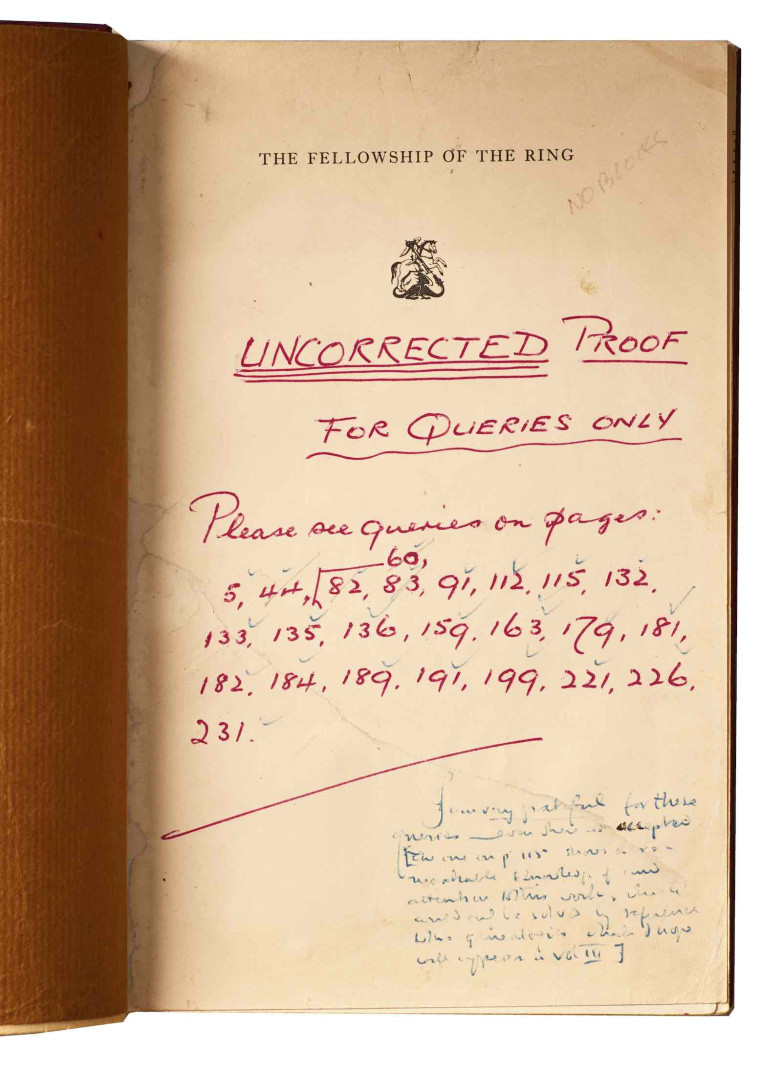 THE FELLOWSHIP OF THE RING
NO BLOCKS
UNCORRECTED PROOF
FOR QUERIES ONLY
Please see queries on pages:
60,
5, 44, 82, 83, 91, 112, 115, 132,
133, 135, 136, 159, 163, 179, 181,
182, 184, 189, 191, 199, 221, 226,
231.
I am very grateful for these
queries — even when not accepted
[The one on p 115 shows a re-
markable knowledge of and
attention to this work, which
could not be solved by reference
to the genealogies which I hope
will appear in vol III]